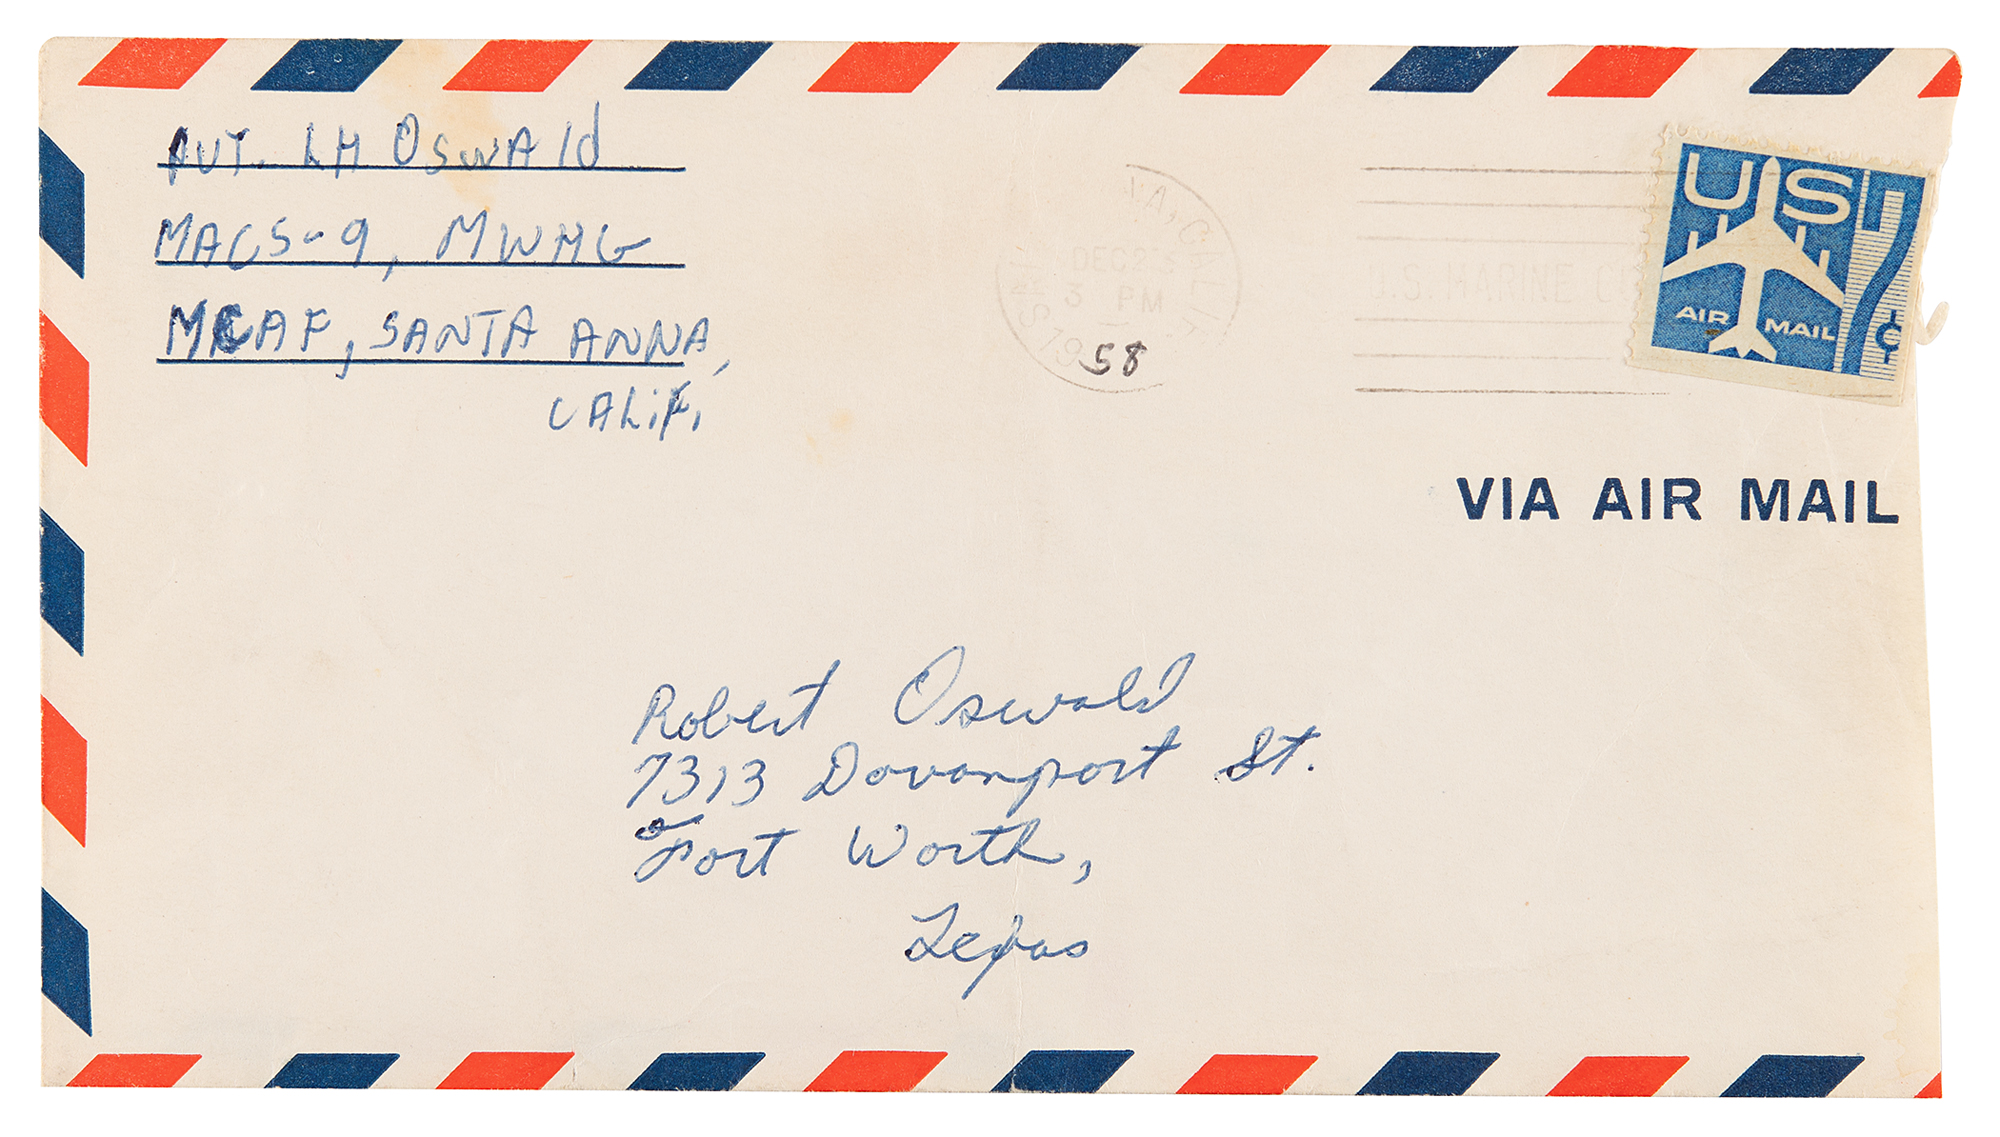 PVT. LH Oswald
MACS-9, MWHG
MCAF, SANTA ANNA,
CALIF.
NA, CALIF
DEC 23
3 PM
1958
U.S. MARINE
US
AIR MAIL
7¢
VIA AIR MAIL
Robert Oswald
7313 Davenport St.
Fort Worth,
Texas